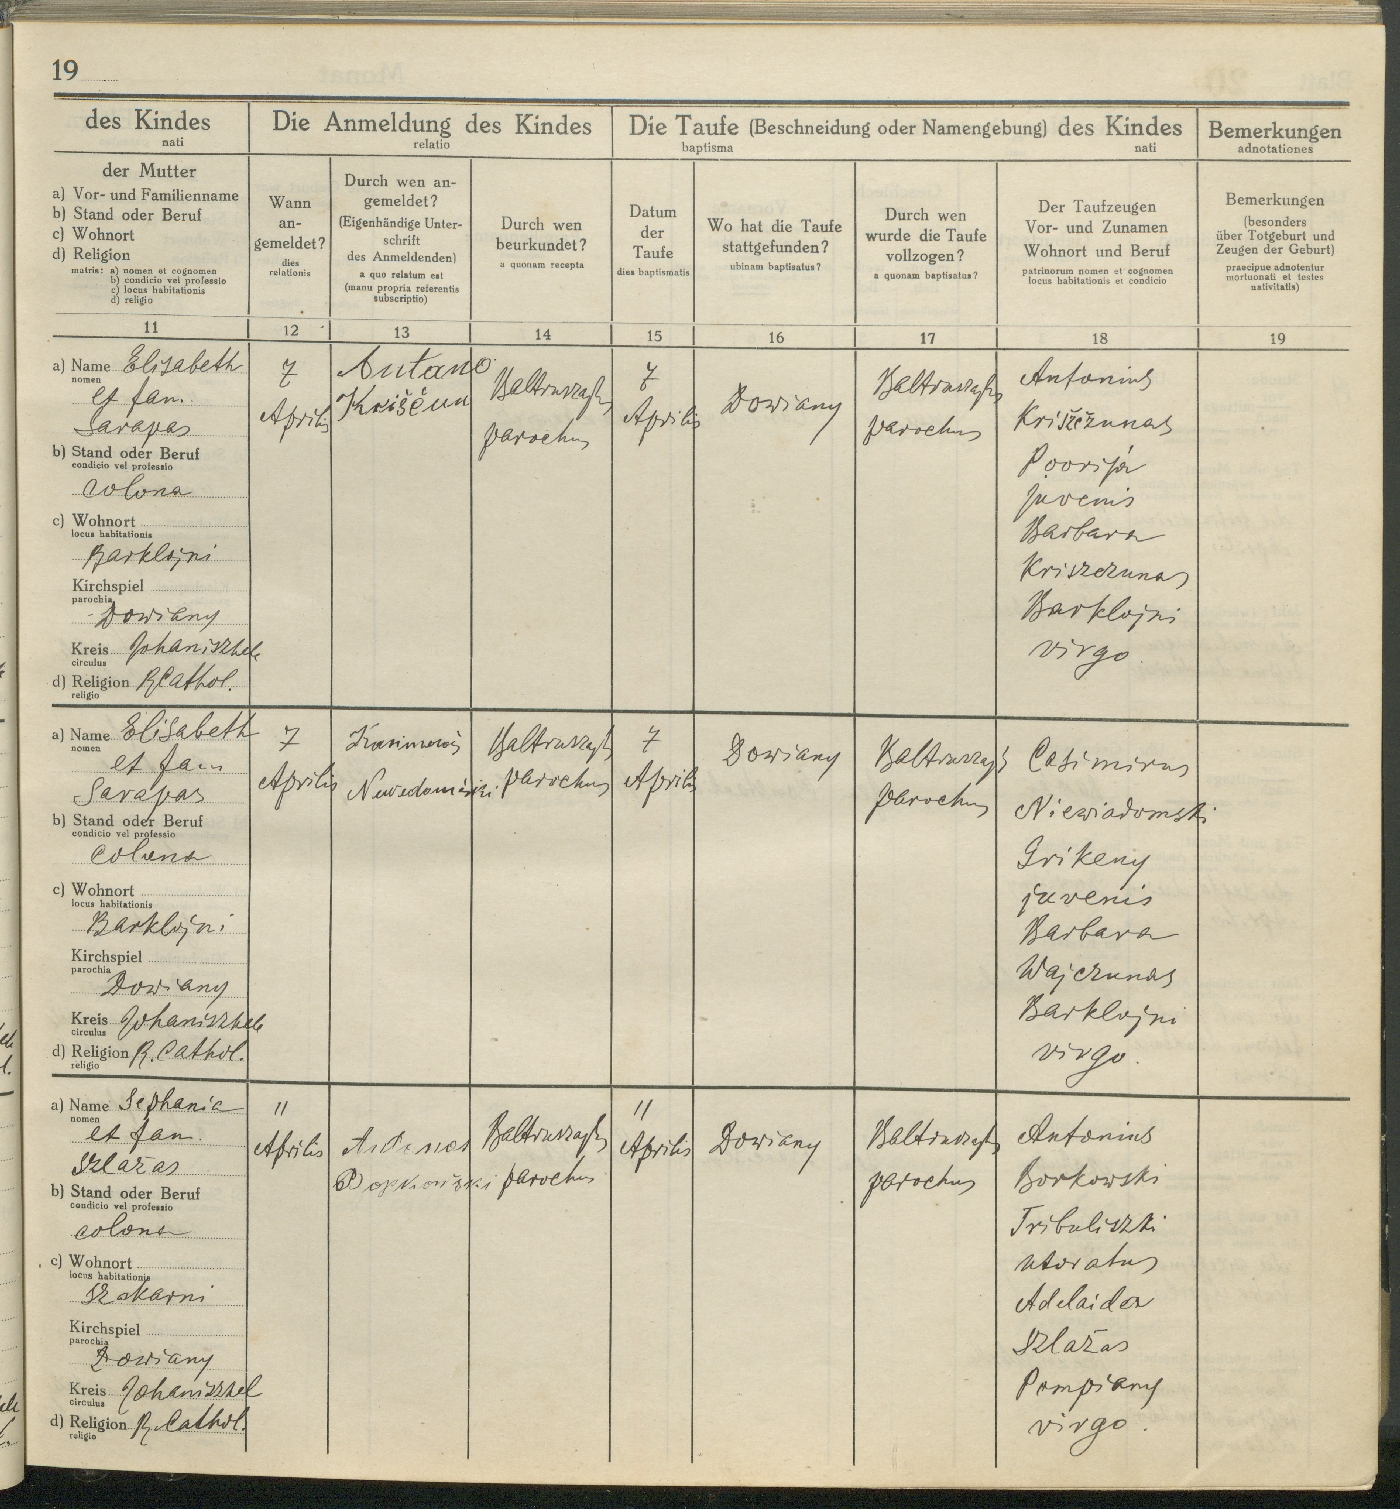 19
des Kindes
nati
Die Anmeldung des Kindes
relatio
Die Taufe (Beschneidung oder Namengebung) des Kindes
baptisma nati
Bemerkungen
adnotationes
der Mutter
a) Vor- und Familienname
b) Stand oder Beruf
c) Wohnort
d) Religion
matris: a) nomen et cognomen
b) condicio vel professio
c) locus habitationis
d) religio
Wann
an-
gemeldet?
dies
relationis
Durch wen an-
gemeldet?
(Eigenhändige Unter-
schrift
des Anmeldenden)
a quo relatum est
(manu propria referentis
subscriptio)
Durch wen
beurkundet?
a quonam recepta
Datum
der
Taufe
dies baptismatis
Wo hat die Taufe
stattgefunden?
ubinam baptisatus?
Durch wen
wurde die Taufe
vollzogen?
a quonam baptisatus?
Der Taufzeugen
Vor- und Zunamen
Wohnort und Beruf
patrinorum nomen et cognomen
locus habitationis et condicio
Bemerkungen
(besonders
über Totgeburt und
Zeugen der Geburt)
praecipue adnotentur
mortuonati et testes
nativitatis)
11 12 13 14 15 16 17 18 19
a) Name Elisabeth
nomen
et fam.
Sarapas
b) Stand oder Beruf
condicio vel professio
colona
c) Wohnort
locus habitationis
Barklojni
Kirchspiel
parochia
Dowiany
Kreis Johaniszkele
circulus
d) Religion R Cathol.
religio
7
Aprilis
Antano
Kriščun
Baltruszajtys
parochus
7
Aprilis
Dowiany
Baltruszajtys
parochus
Antonius
Kriszczunas
juvenis
Barbara
Kriszczunas
Barklojni
virgo
a) Name Elisabeth
nomen
et fam
Sarapas
b) Stand oder Beruf
condicio vel professio
colona
c) Wohnort
locus habitationis
Barklojni
Kirchspiel
parochia
Dowiany
Kreis Johaniszkele
circulus
d) Religion R. Cathol.
religio
7
Aprilis
Baltruszajtys
parochus
7
Aprilis
Dowiany
Baltruszajtys
parochus
Casimirus
Niewiadomski
Grikeny
juvenis
Barbara
Wajczunas
Barklojni
virgo.
a) Name Stephania
nomen
et fam.
Szlažas
b) Stand oder Beruf
condicio vel professio
colona
c) Wohnort
locus habitationis
Szakarni
Kirchspiel
parochia
Dowiany
Kreis Johaniszkel
circulus
d) Religion R. Cathol.
religio
11
Aprilis
Baltruszajtys
parochus
11
Aprilis
Dowiany
Baltruszajtys
parochus
Antonius
Borkowski
Tribuliszki
uxoratus
Adelaida
Szlažas
Pompiany
virgo.